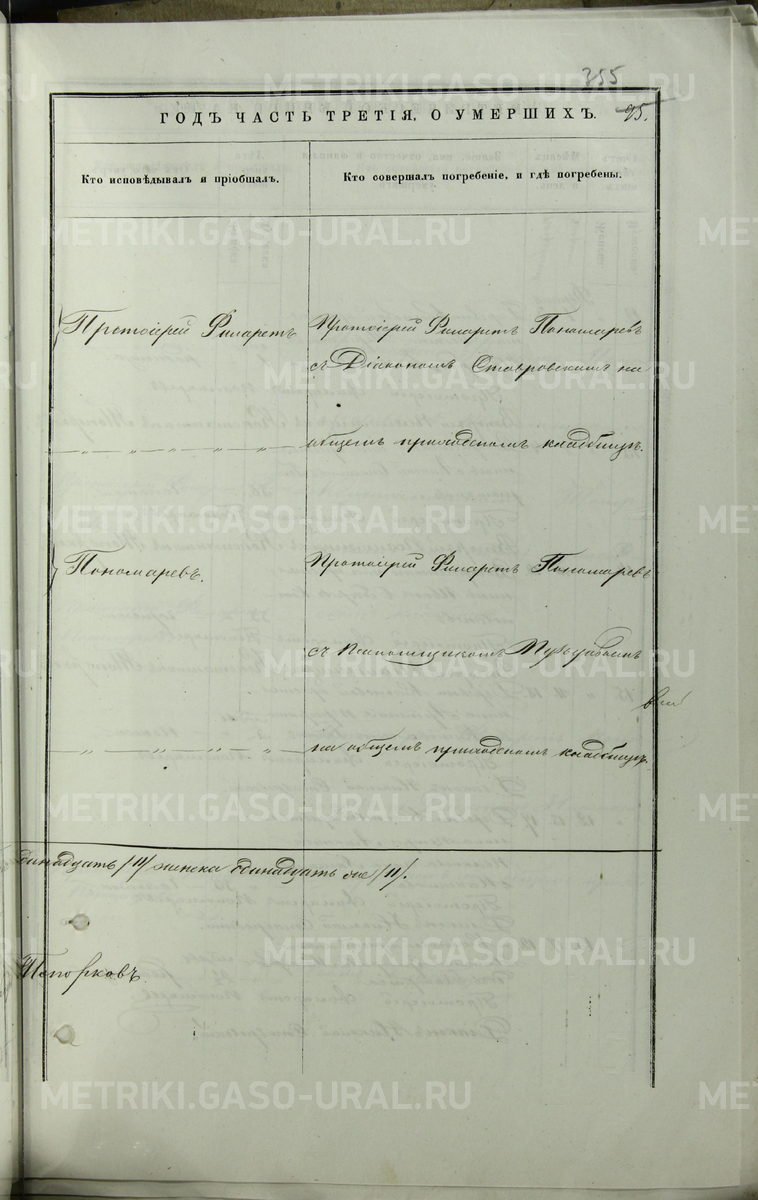 355
ГОДЪ ЧАСТЬ ТРЕТІЯ, О УМЕРШИХЪ. 95.
Кто исповѣдывалъ и пріобщалъ.
Кто совершалъ погребеніе, и гдѣ погребены.
Протоіерей Филаретъ
Протоіерей Филаретъ Пономаревъ
съ Діакономъ Ставровскимъ на
общемъ приходскомъ кладбищѣ.
Пономаревъ.
Протоіерей Филаретъ Пономаревъ
съ Псаломщикомъ
на общемъ приходскомъ кладбищѣ.
динадцать /11/ женска одинадцать /11/.
Топорковъ.
METRIKI.GASO-URAL.RU